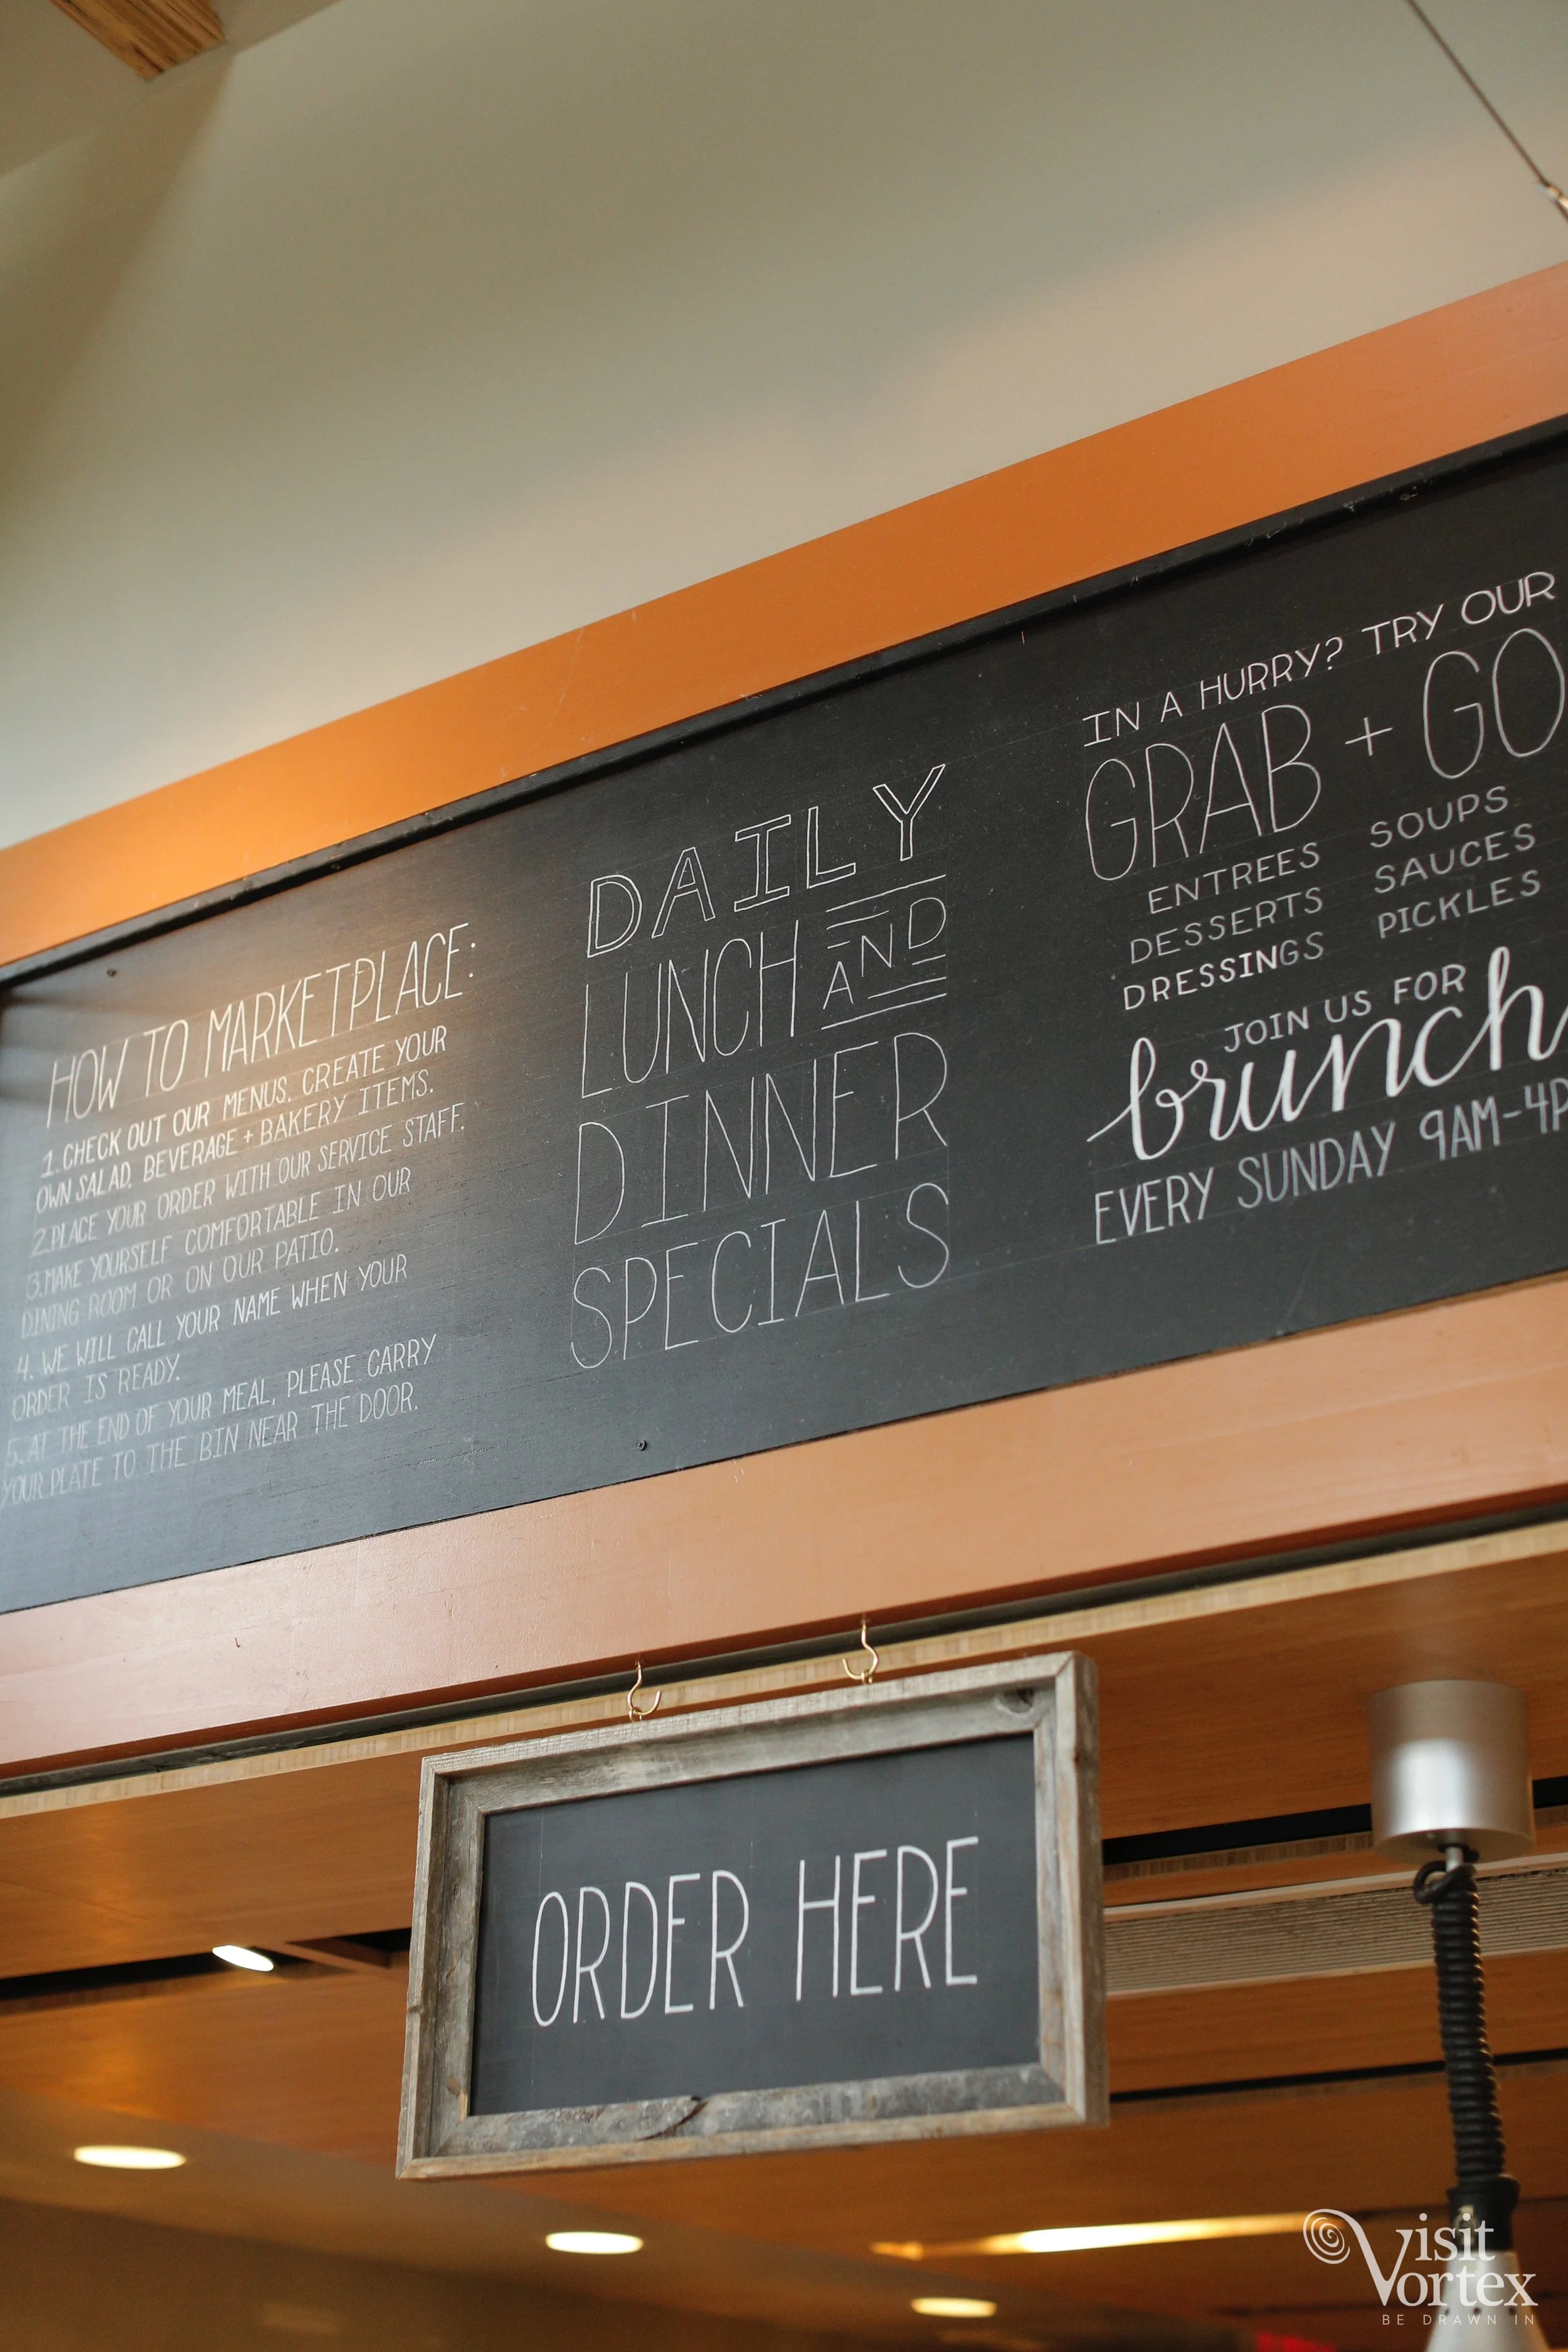 HOW TO MARKETPLACE:
1. CHECK OUT OUR MENUS. CREATE YOUR
OWN SALAD, BEVERAGE + BAKERY ITEMS.
2. PLACE YOUR ORDER WITH OUR SERVICE STAFF.
3. MAKE YOURSELF COMFORTABLE IN OUR
DINING ROOM OR ON OUR PATIO.
4. WE WILL CALL YOUR NAME WHEN YOUR
ORDER IS READY.
5. AT THE END OF YOUR MEAL, PLEASE CARRY
YOUR PLATE TO THE BIN NEAR THE DOOR.
DAILY
LUNCH AND
DINNER
SPECIALS
IN A HURRY? TRY OUR
GRAB + GO
ENTREES SOUPS
DESSERTS SAUCES
DRESSINGS PICKLES
JOIN US FOR
brunch
EVERY SUNDAY 9AM-4P
ORDER HERE
Visit
Vortex
BE DRAWN IN